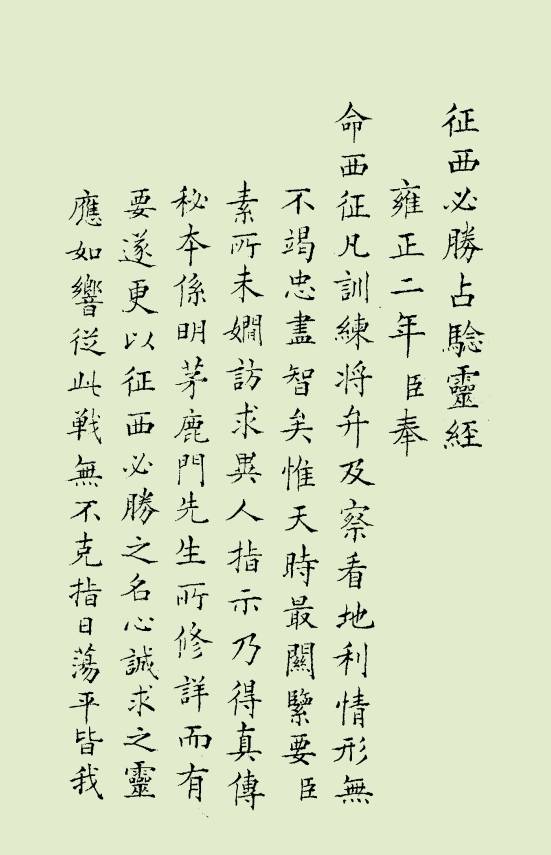 征西必勝占驗靈經
雍正二年臣奉
命西征凡訓練将弁及察看地利情形無
不竭忠盡智矣惟天時最關緊要臣
素所未嫺訪求異人指示乃得真傳
秘本係明茅鹿門先生所修詳而有
要遂更以征西必勝之名心誠求之靈
應如響從此戰無不克指日蕩平皆我